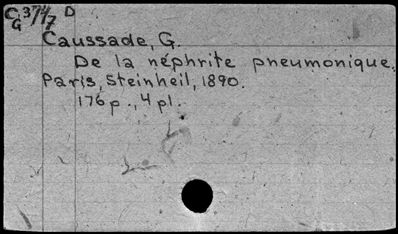 C 374 D
G 7
Caussade, G.
De la néphrite pneumonique.
Paris, Steinheil, 1890.
176 p., 4 pl.